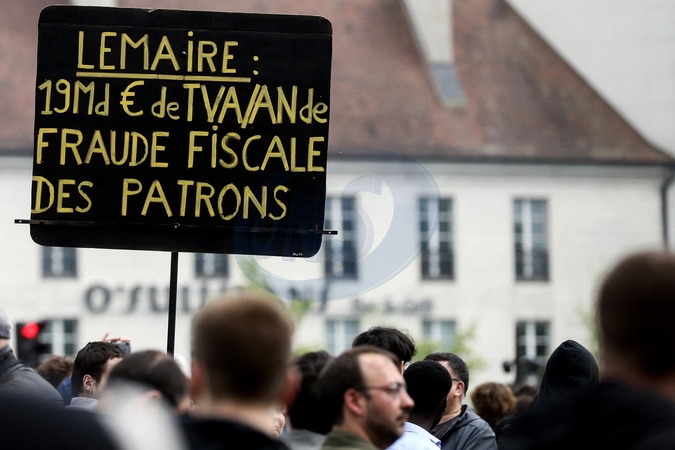 LEMAIRE :
19Md € de TVA/AN de
FRAUDE FISCALE
DES PATRONS
O'SULLIVANS